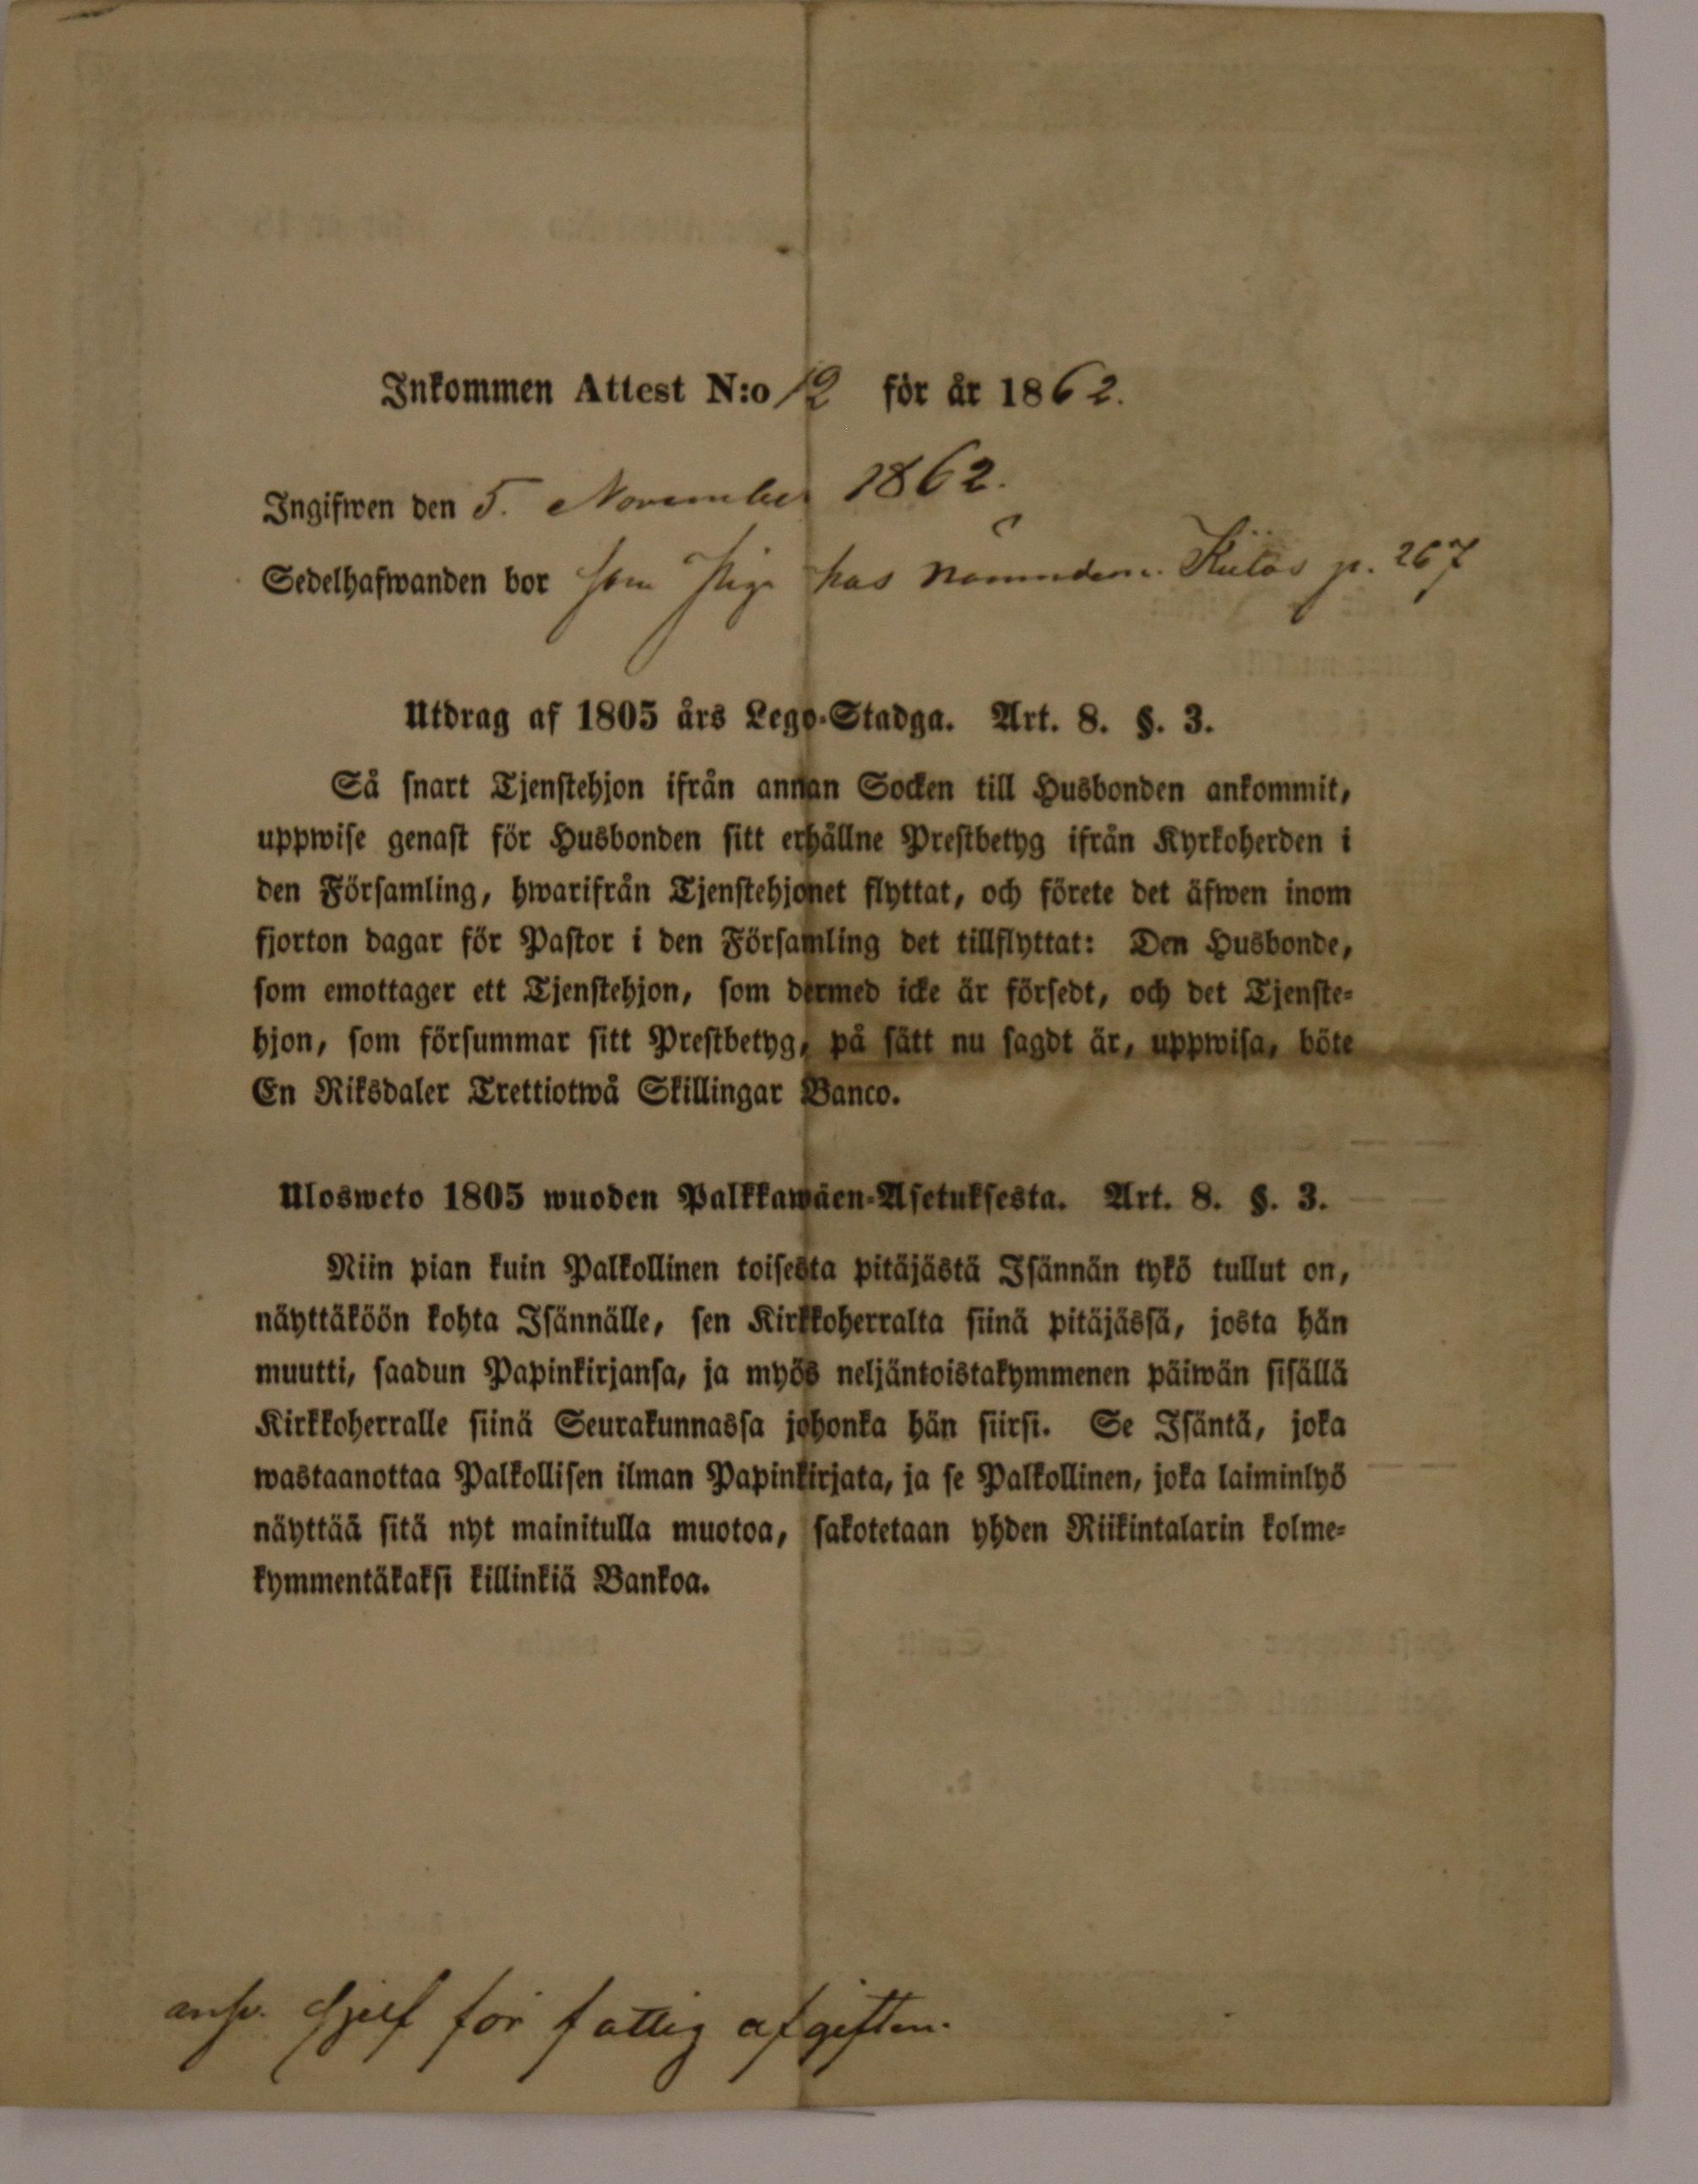 Inkommen Attest N:o 12 för år 1862.
Ingifwen den 5. November 1862.
Sedelhafwanden bor som Pig. hos p. 267
Utdrag af 1805 års Lego-Stadga. Art. 8. §. 3.
Så snart Tjenstehjon ifrån annan Socken till Husbonden ankommit,
uppwise genast för Husbonden sitt erhållne Prestbetyg ifrån Kyrkoherden i
den Församling, hwarifrån Tjenstehjonet flyttat, och förete det äfwen inom
fjorton dagar för Pastor i den Församling det tillflyttat: Den Husbonde,
som emottager ett Tjenstehjon, som dermed icke är försedt, och det Tjenste-
hjon, som försummar sitt Prestbetyg, på sätt nu sagdt är, uppwisa, böte
En Riksdaler Trettiotwå Skillingar Banco.
Ulosweto 1805 wuoden Palkkawäen-Asetuksesta. Art. 8. §. 3.
Niin pian kuin Palkollinen toisesta pitäjästä Isännän tykö tullut on,
näyttäköön kohta Isännälle, sen Kirkkoherralta siinä pitäjässä, josta hän
muutti, saadun Papinkirjansa, ja myös neljäntoistakymmenen päiwän sisällä
Kirkkoherralle siinä Seurakunnassa johonka hän siirsi. Se Isäntä, joka
wastaanottaa Palkollisen ilman Papinkirjata, ja se Palkollinen, joka laiminlyö
näyttää sitä nyt mainitulla muotoa, sakotetaan yhden Riikintalarin kolme-
kymmentäkaksi killinkiä Bankoa.
answ. sjelf för fattig afgiften.